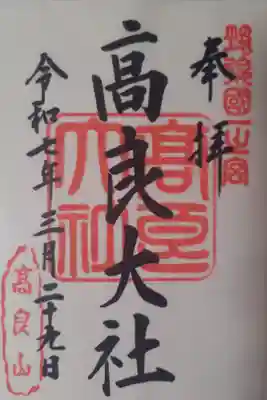 筑後國一之宮
奉拝
高良大社
髙良大社
令和七年三月二十九日
高良山